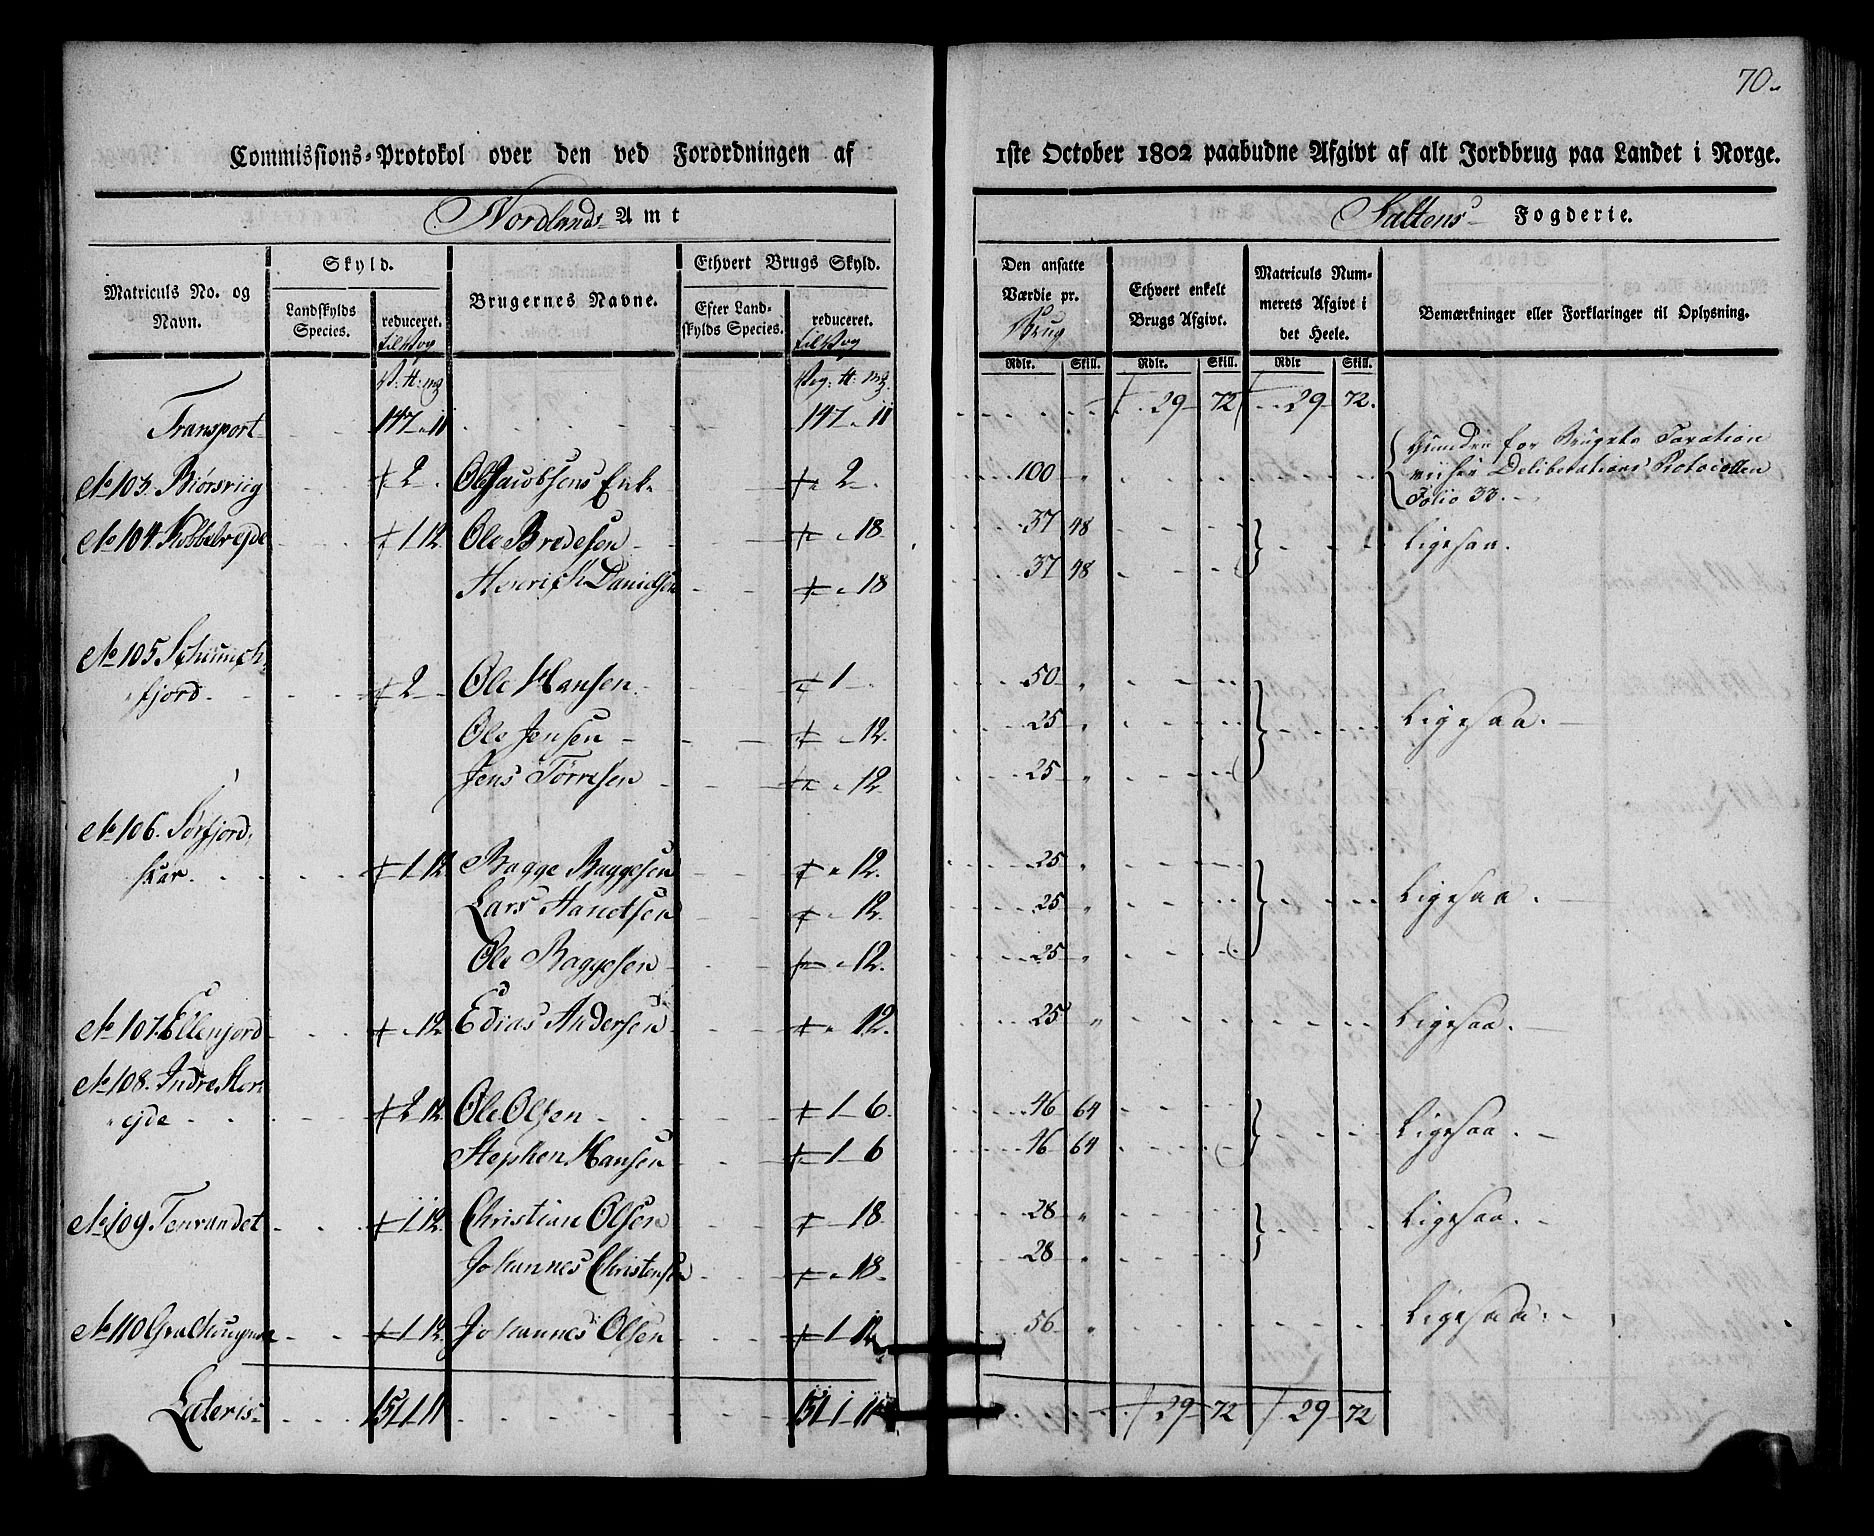 70.
Commissions-Protokol over den ved Forordningen af 1ste October 1802 paabudne Afgivt af alt Jordbrug paa Landet i Norge.
Nordlands Amt
Saltens Fogderie.
Matriculs No. og Navn.
Skyld.
Landskylds Species.
reduceret. til Vog
Brugernes Navne.
Ethvert Brugs Skyld.
Efter Landskylds Species.
reduceret. til Vog
Den ansatte Værdie pr. Brug
Ethvert enkelt Brugs Afgivt.
Matriculs Nummerets Afgivt i det Heele.
Bemærkninger eller Forklaringer til Oplysning.
Rdlr. Skill. Rdlr. Skill. Rdlr Skill.
V: ℔: mg Vog: ℔: mg
Transport 147 " 11 147 " 11 29 72 29 72.
No 103. Biørsvieg 2 Ole Jacobsens Enke 2 100 "
Taxation
Deliberations Protocollen
Folio 33.
No 104. Kobbelvejde 1 12 Ole Bredesen " 18 37 48 Ligesaa.
Henrich Danielsen " 18 37 48
No 105.
fjord 2 Ole Hansen 1 50 " Ligesaa.
Ole Jensen " 12 25 "
Jens Torresen " 12 25 "
No 106. Sørfjord
skar. 1 12 Bagge Baggesen " 12. 25 " Ligesaa.
Lars " 12. 25 "
Ole Baggesen " 12. 25 "
No 107. Ellenjord " 12 Edias Andersen " 12. 25 " Ligesaa.
No 108. Indre
ejde 2 12 Ole Olsen 1 6. 46 64 Ligesaa.
Stephen Hansen 1 6 46 64
No 109. Tenvandet 1 12 Christian Olsen 18. 28 " Ligesaa.
Johannes Christensen " 18. 28 "
No 110 1 12 Johannes Olsen 1 12 56 " Ligesaa.
Lateris 151 1 11 151 1 11 29 72 29 72